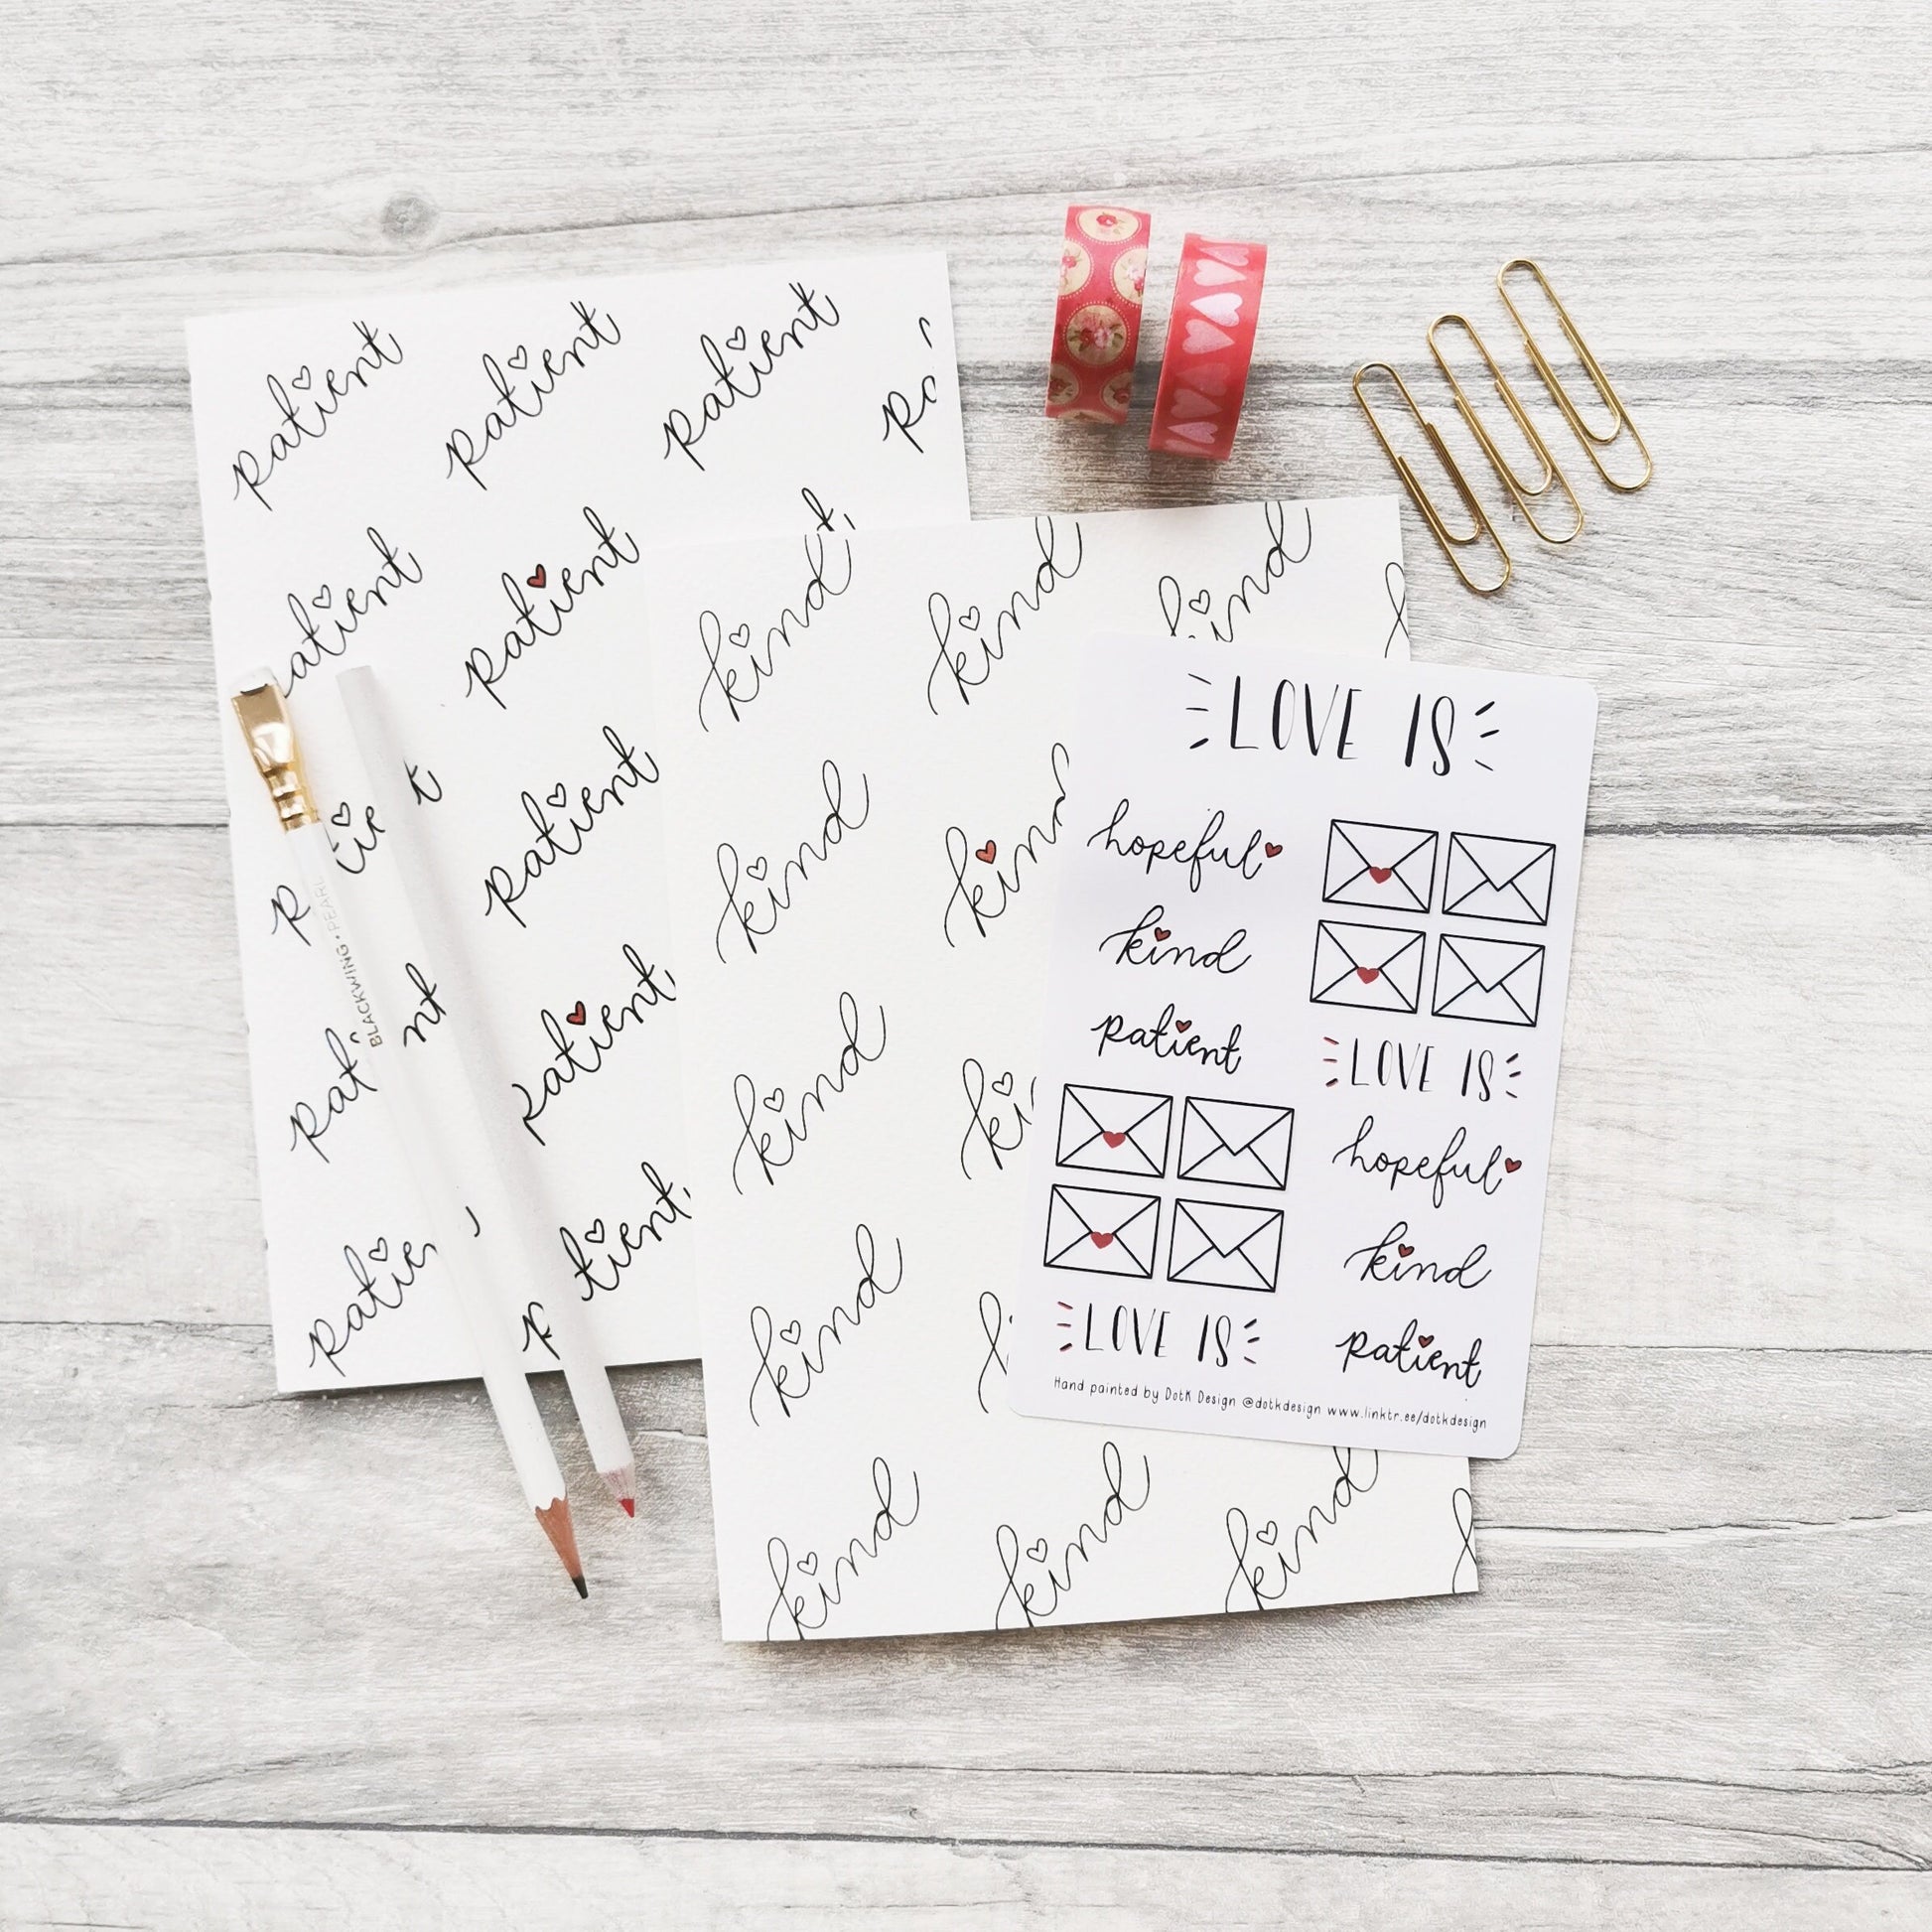 patient patient patient
patient patient
patient
patient
kind kind kind
kind
kind
kind
kind kind kind
BLACKWING • PEARL
LOVE IS
hopeful
kind
patient
LOVE IS
hopeful
kind
patient
LOVE IS
Hand painted by DotK Design @dotkdesign www.linktr.ee/dotkdesign